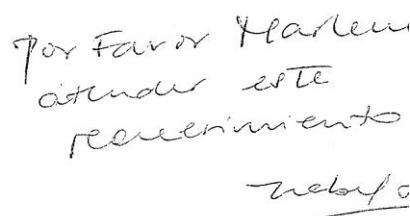 por Favor Marlen
atender este
requerimiento